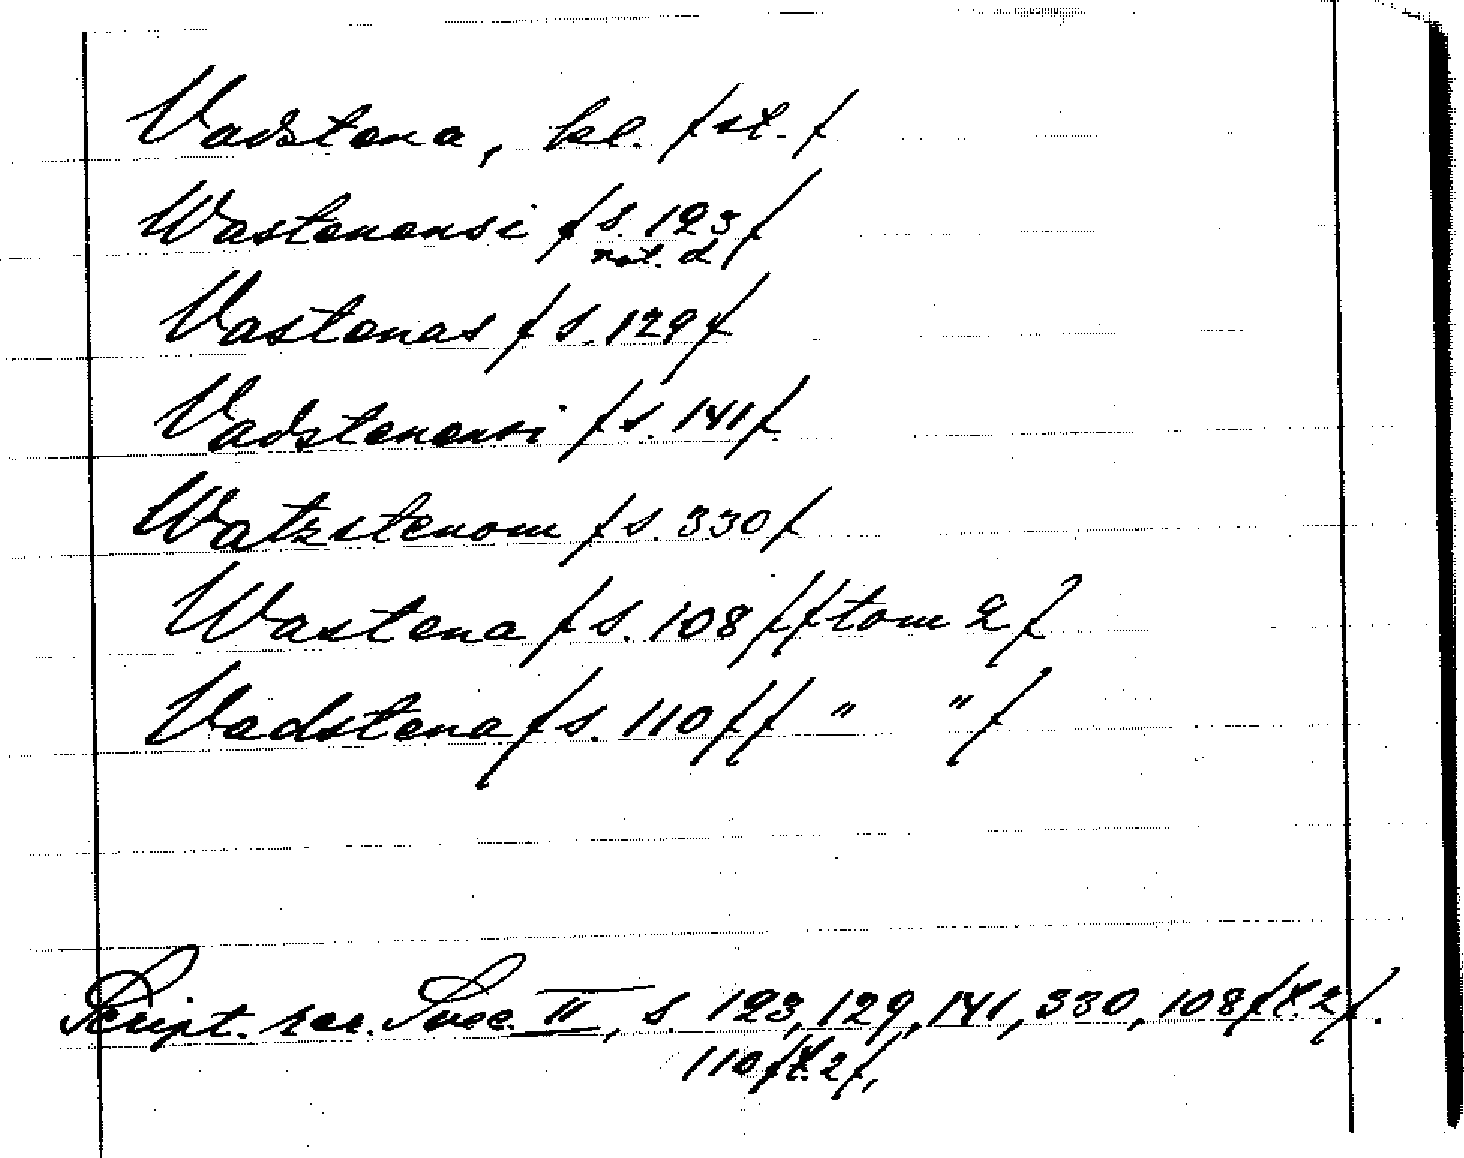 Vadstena, kl. /st./
Wastenensi /s. 123/
not. d
Vastenas /s. 129/
Vadstenensi /s. 141/
Watzstenom /s. 330/
Wastena /s. 108/ /tom 2/
Vadstena /s. 110/ / " " /
Script. rer. Svec. II, s. 123, 129, 141, 330, 108 /t. 2/.
110 /t. 2/,